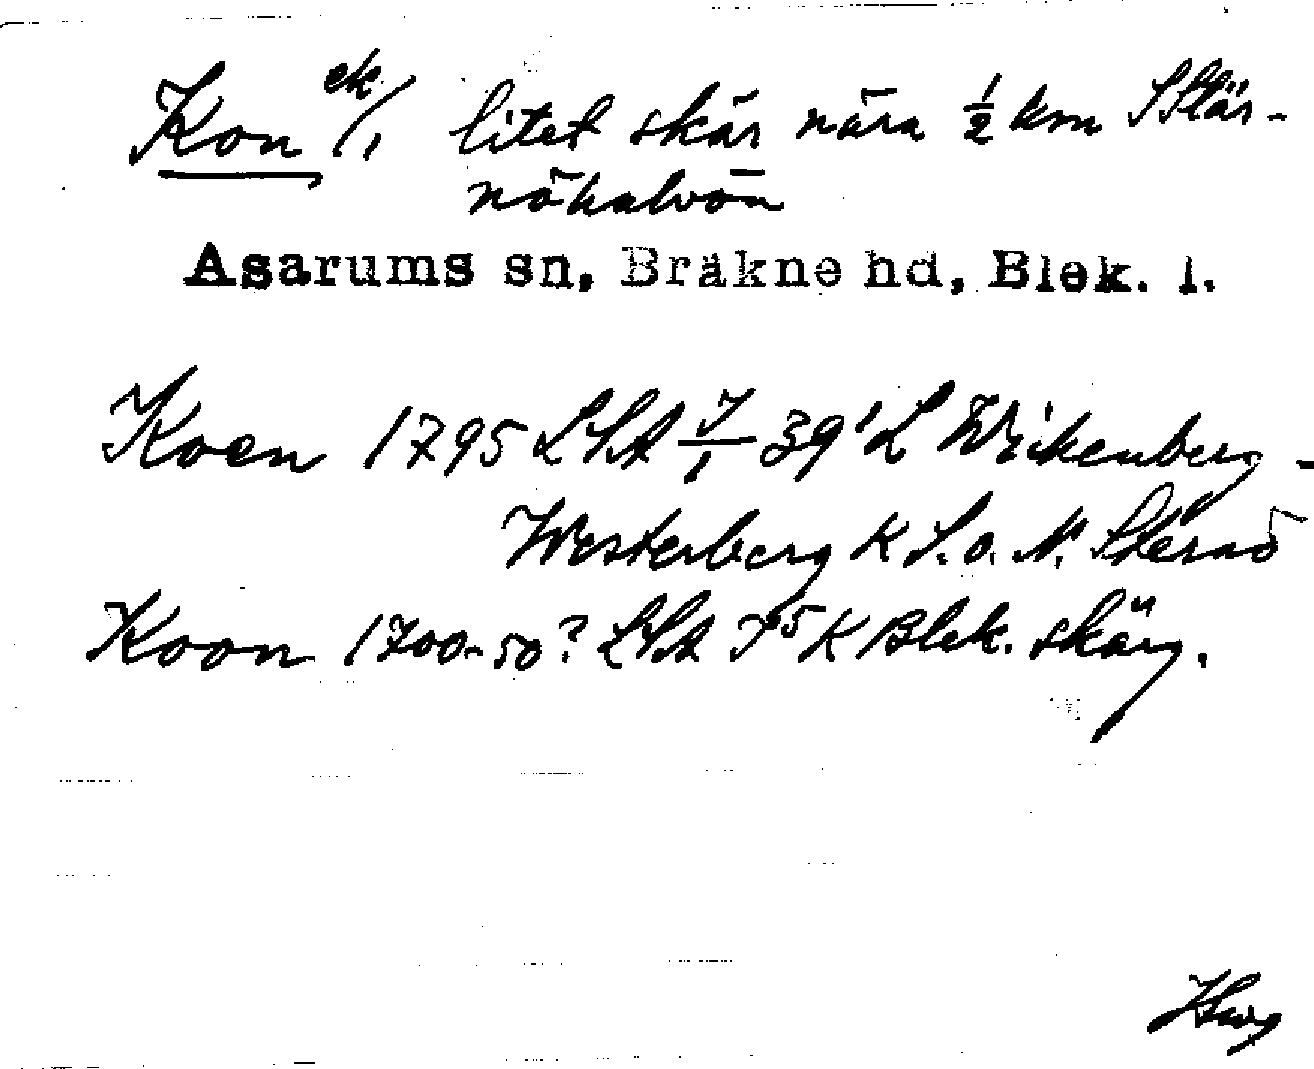 Kon ek/1 litet skär nära ½ km Stär-
nöhalvön
Asarums sn, Bräkne hd, Blek. l.
Koen 1795 LSA 39' L Wikenberg -
Westerberg K S. o. N. Sternö
Koon 1700-50? LSA K Blek. skärg.